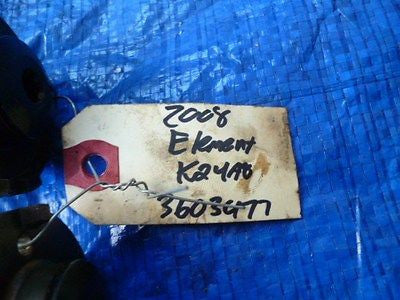 2008
Element
K24A8
3603477